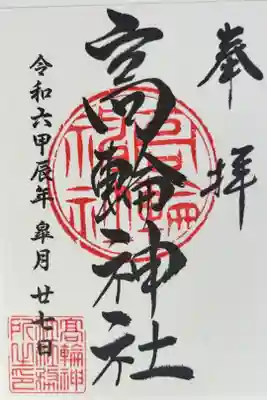 奉拝
高輪神社
令和六甲辰年 皐月 廿七日
高輪神
社社務
所之印